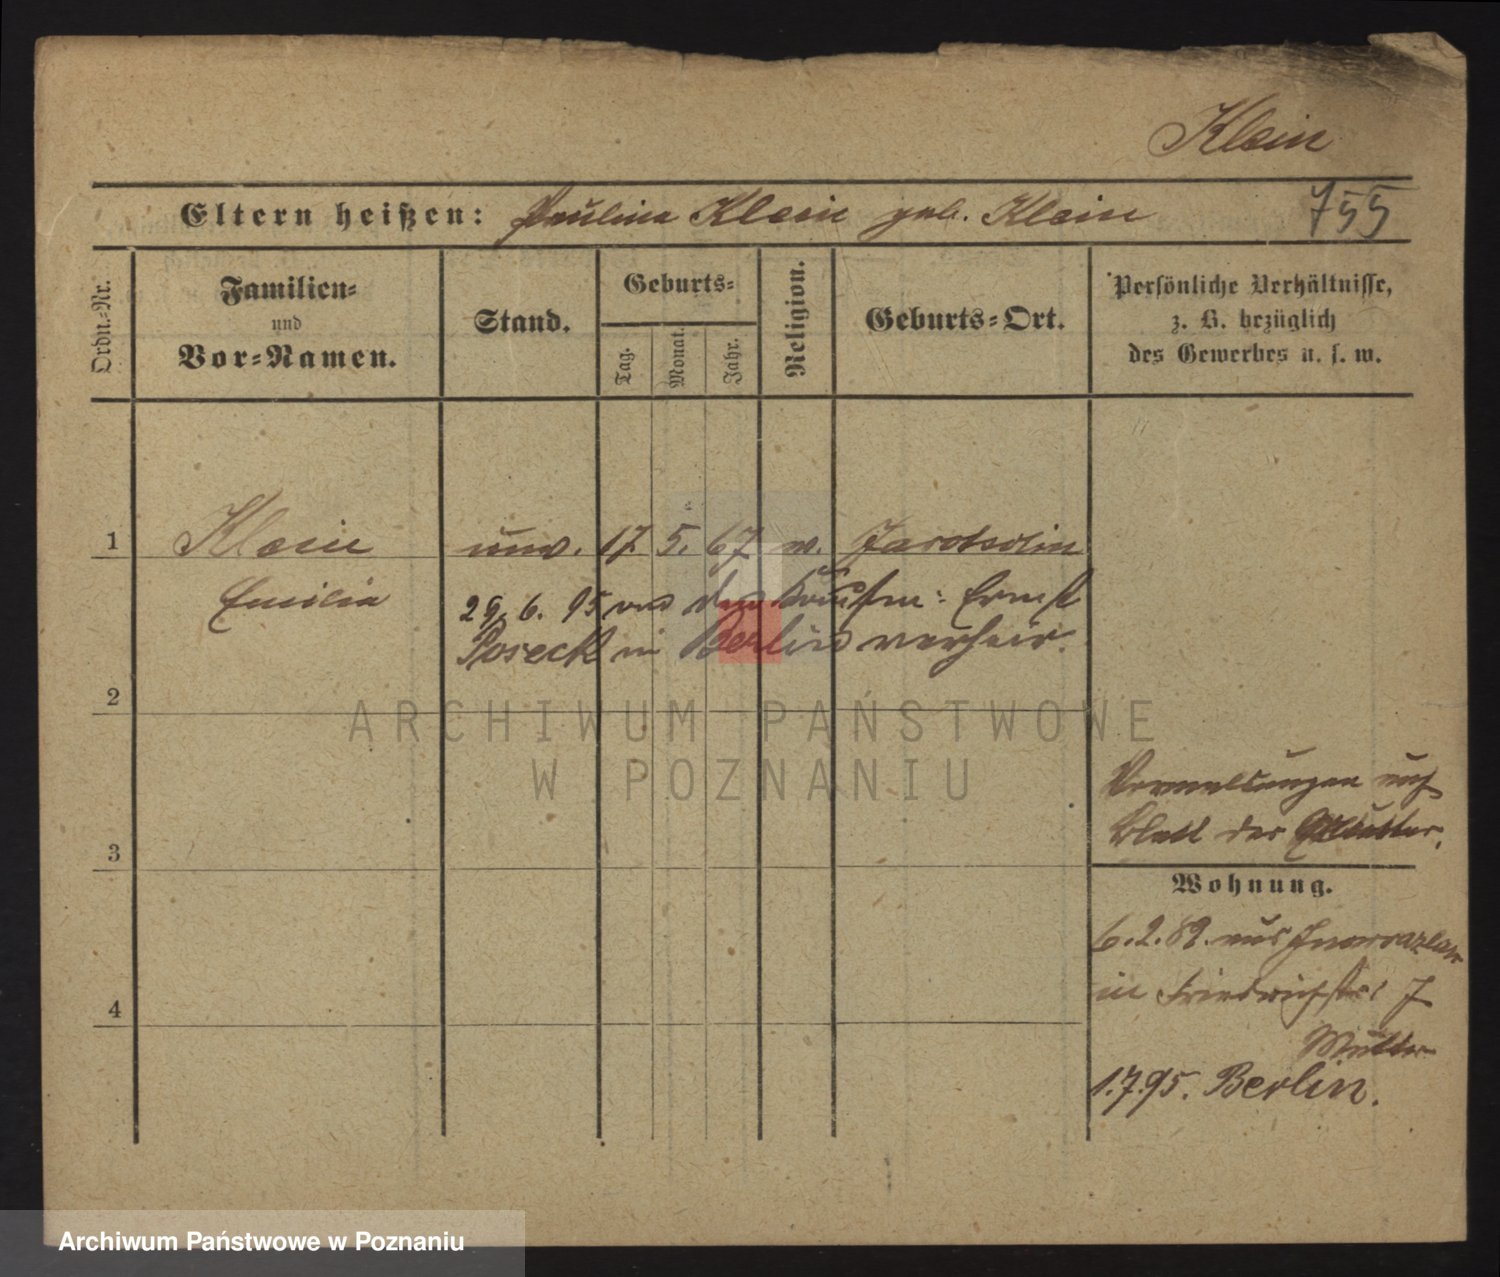 Klein
Eltern heißen: Paulina Klein geb. Klein 755
Ordn.-Nr.
Familien-
und
Vor-Namen.
Stand.
Geburts-
Tag.
Monat.
Jahr.
Religion.
Geburts-Ort.
Persönliche Verhältnisse,
z. B. bezüglich
des Gewerbes u. s. w.
1 Klein unv. 17. 5. 67 m. Jarotschin
Emilie
29. 6. 95 mit dem Kaufm: Ernst
Poseck in Berlin verheir.
2
ARCHIWUM PAŃSTWOWE
W POZNANIU
blatt der Mutter.
3
Wohnung.
6.2.82. aus Inowrazlaw
in Friedrichstr 7
4
Mutter
1.7.95. Berlin.
Archiwum Państwowe w Poznaniu